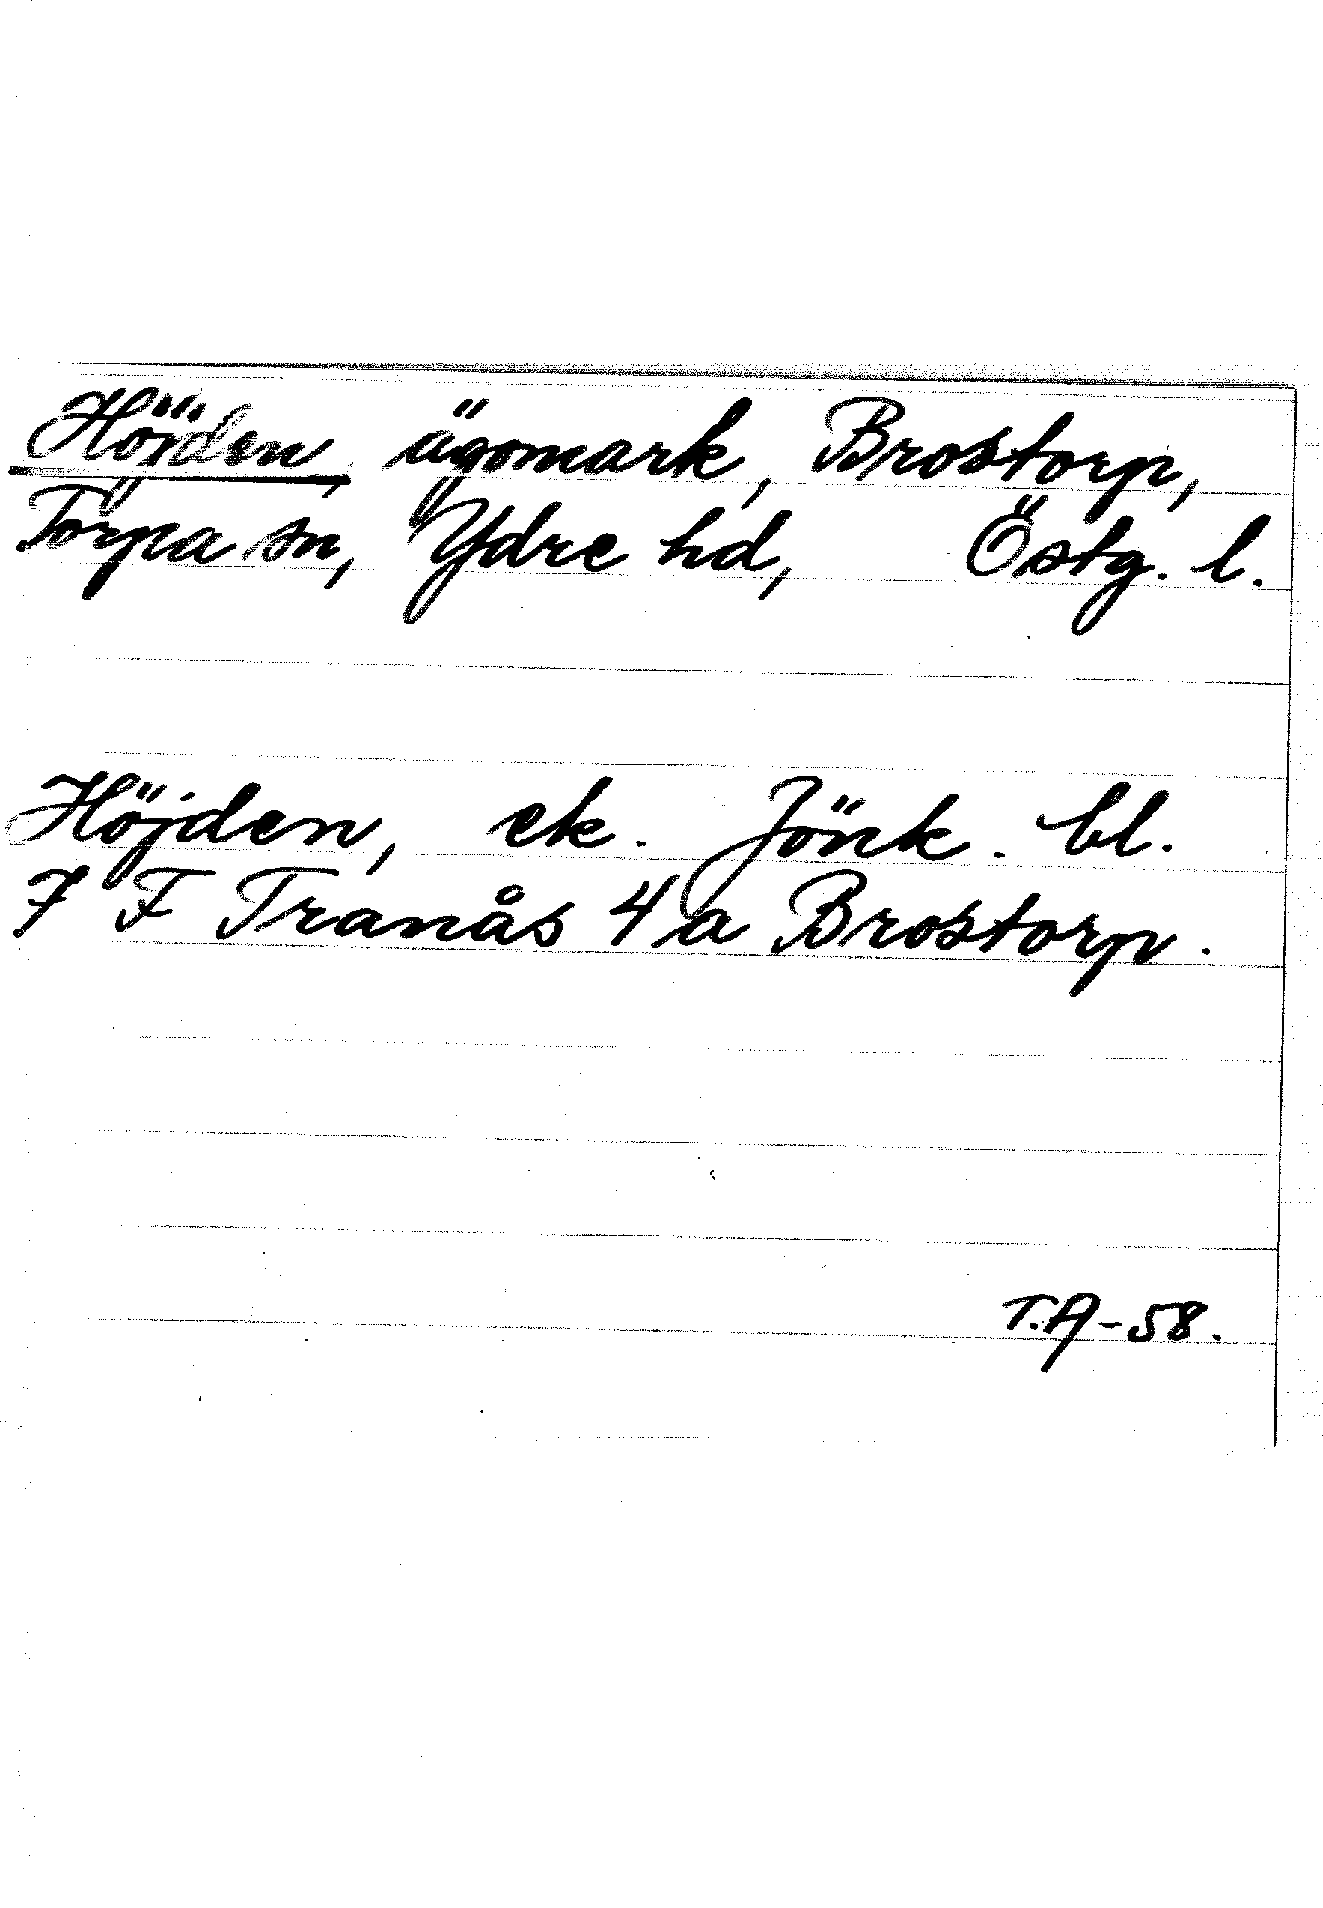 Höjden, ägomark, Brostorp,
Torpa sn, Ydre hd, Östg. l.
Höjden, ek. Jönk. bl.
7 F Tranås 4 a Brostorp.
T.A-58.